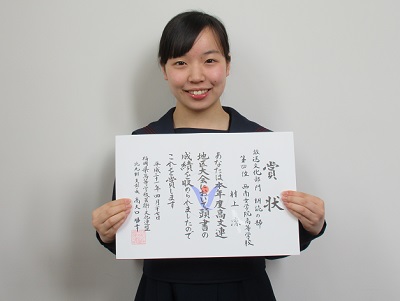 賞状
放送文化部門 朗読の部
第四位 西南女学院高等学校
村上
あなたは本年度高文連
地区大会において頭書の
成績を収められましたので
これを賞します
平成二十一年四月二十七日
福岡県高等学校芸術・文化連盟